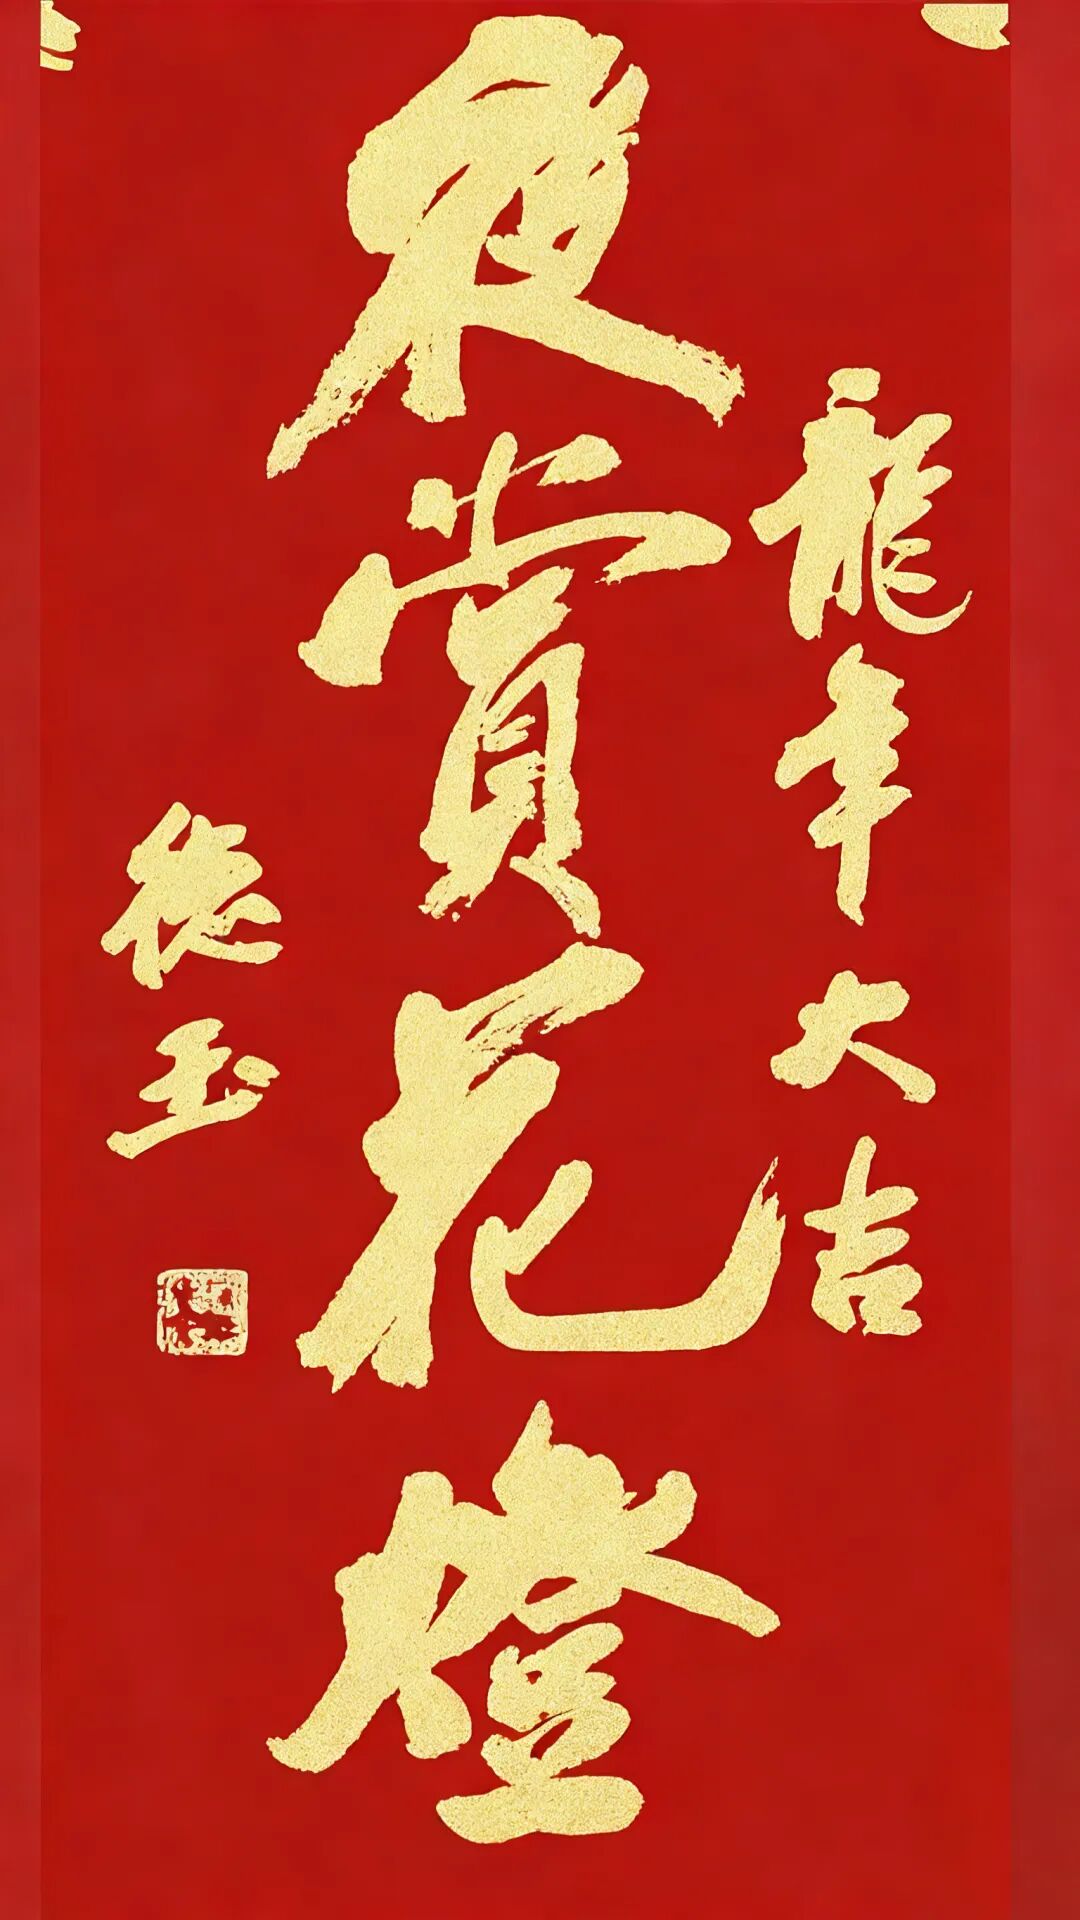 龍年大吉
夜賞花燈
德玉